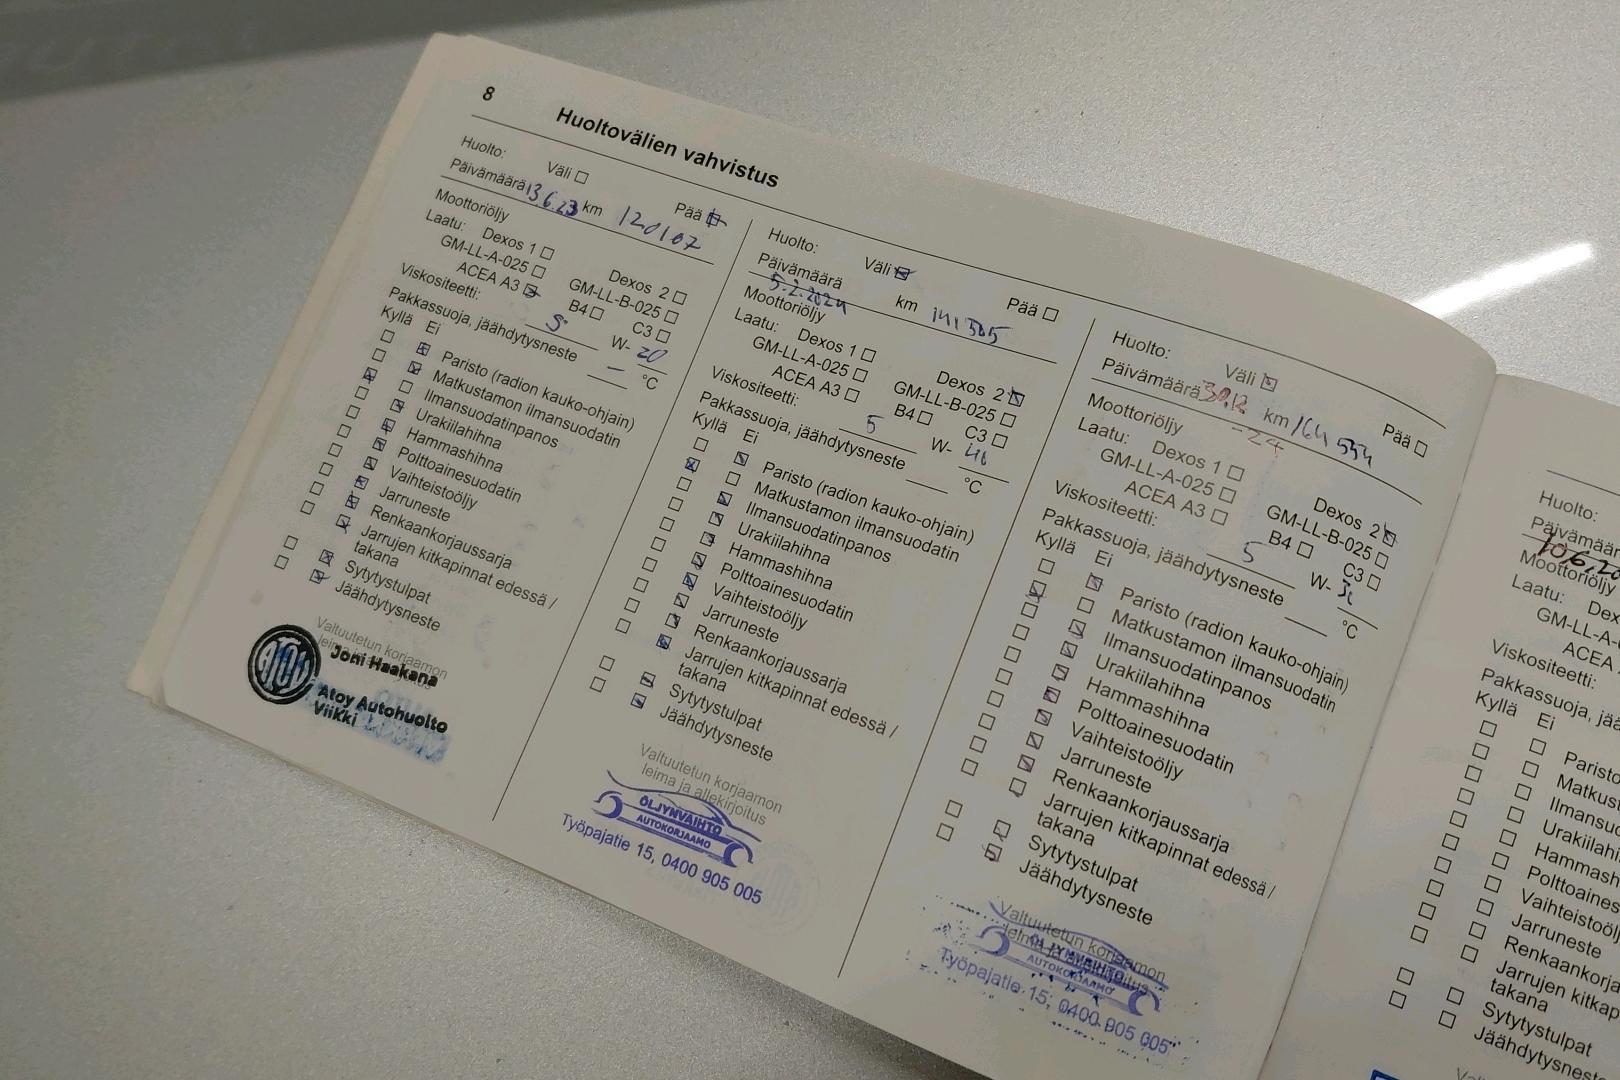 8
Huoltovälien vahvistus
Huolto: Väli Pää
Päivämäärä 13.6.23 km 120107
Moottoriöljy
Laatu: Dexos 1 Dexos 2
GM-LL-A-025 GM-LL-B-025
ACEA A3 B4 C3
Viskositeetti: 5 W- 20
Pakkassuoja, jäähdytysneste — °C
Kyllä Ei
Paristo (radion kauko-ohjain)
Matkustamon ilmansuodatin
Ilmansuodatinpanos
Urakiilahihna
Hammashihna
Polttoainesuodatin
Vaihteistoöljy
Jarruneste
Renkaankorjaussarja
Jarrujen kitkapinnat edessä /
takana
Sytytystulpat
Jäähdytysneste
Valtuutetun korjaamon
ATOY
Joni Haakana
Atoy Autohuolto
Viikki
Huolto: Väli Pää
Päivämäärä 5.2.2024 km 141505
Moottoriöljy
Laatu: Dexos 1 Dexos 2
GM-LL-A-025 GM-LL-B-025
ACEA A3 B4 C3
Viskositeetti: 5 W-
Pakkassuoja, jäähdytysneste °C
Kyllä Ei
Paristo (radion kauko-ohjain)
Matkustamon ilmansuodatin
Ilmansuodatinpanos
Urakiilahihna
Hammashihna
Polttoainesuodatin
Vaihteistoöljy
Jarruneste
Renkaankorjaussarja
Jarrujen kitkapinnat edessä /
takana
Sytytystulpat
Jäähdytysneste
Valtuutetun korjaamon
leima ja allekirjoitus
ÖLJYNVAIHTO
AUTOKORJAAMO
Työpajatie 15, 0400 905 005
Huolto: Väli Pää
Päivämäärä 30.12 km 164554
-24
Moottoriöljy
Laatu: Dexos 1 Dexos 2
GM-LL-A-025 GM-LL-B-025
ACEA A3 B4 C3
Viskositeetti: 5 W- 30
Pakkassuoja, jäähdytysneste °C
Kyllä Ei
Paristo (radion kauko-ohjain)
Matkustamon ilmansuodatin
Ilmansuodatinpanos
Urakiilahihna
Hammashihna
Polttoainesuodatin
Vaihteistoöljy
Jarruneste
Renkaankorjaussarja
Jarrujen kitkapinnat edessä /
takana
Sytytystulpat
Jäähdytysneste
Valtuutetun korjaamon
leima ja allekirjoitus
ÖLJYNVAIHTO
AUTOKORJAAMO
Työpajatie 15, 0400 905 005
Huolto:
Päivämäär
10.6.20
Moottoriöljy
Laatu: Dex
GM-LL-A
ACEA
Viskositeetti:
Pakkassuoja, jää
Kyllä Ei
Paristo
Matkust
Ilmansuo
Urakiilahi
Hammash
Polttoaines
Vaihteistoölj
Jarruneste
Renkaankorja
Jarrujen kitkap
takana
Sytytystulpat
Jäähdytysneste